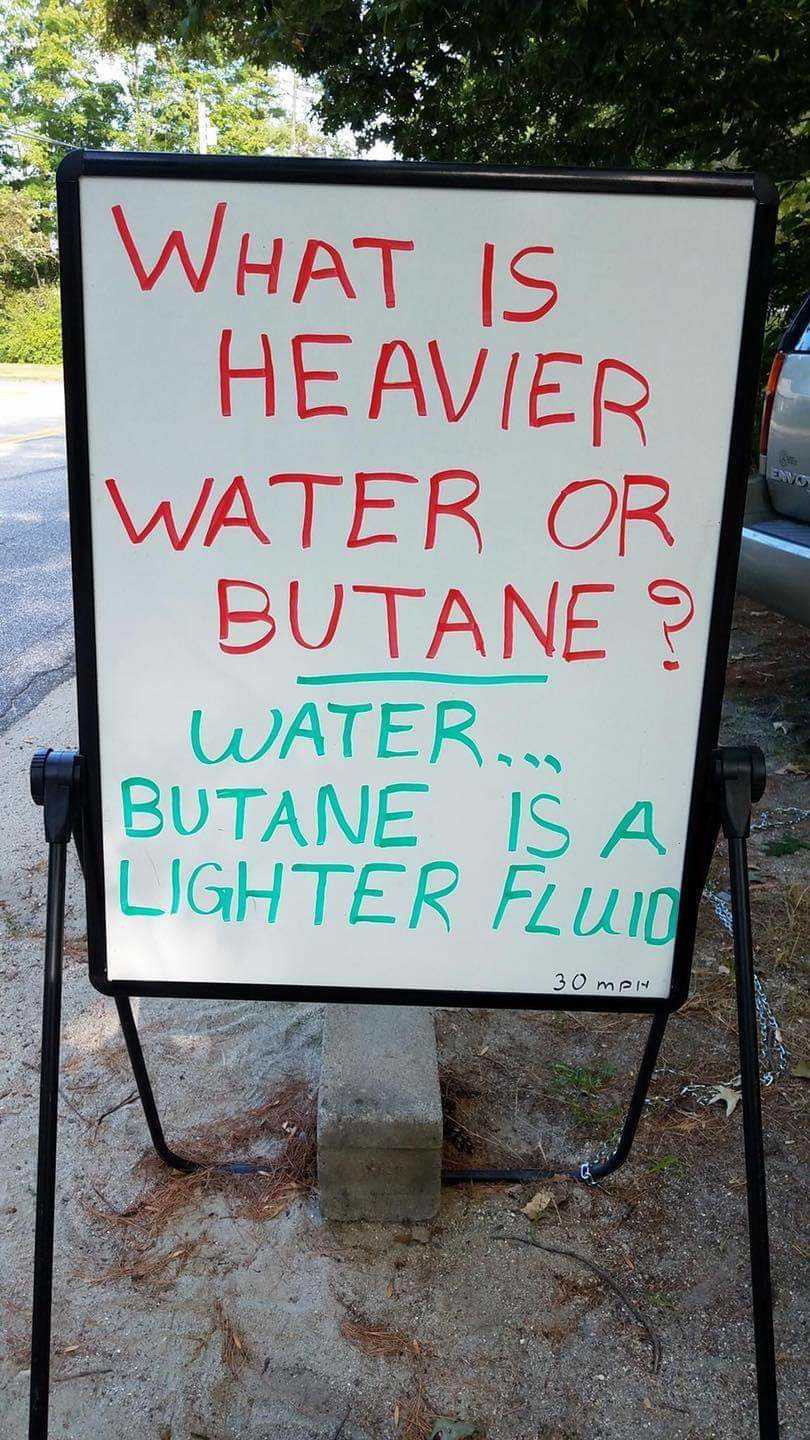 WHAT IS
HEAVIER
WATER OR
BUTANE?
WATER...
BUTANE IS A
LIGHTER FLUID
30 MPH
ENVO